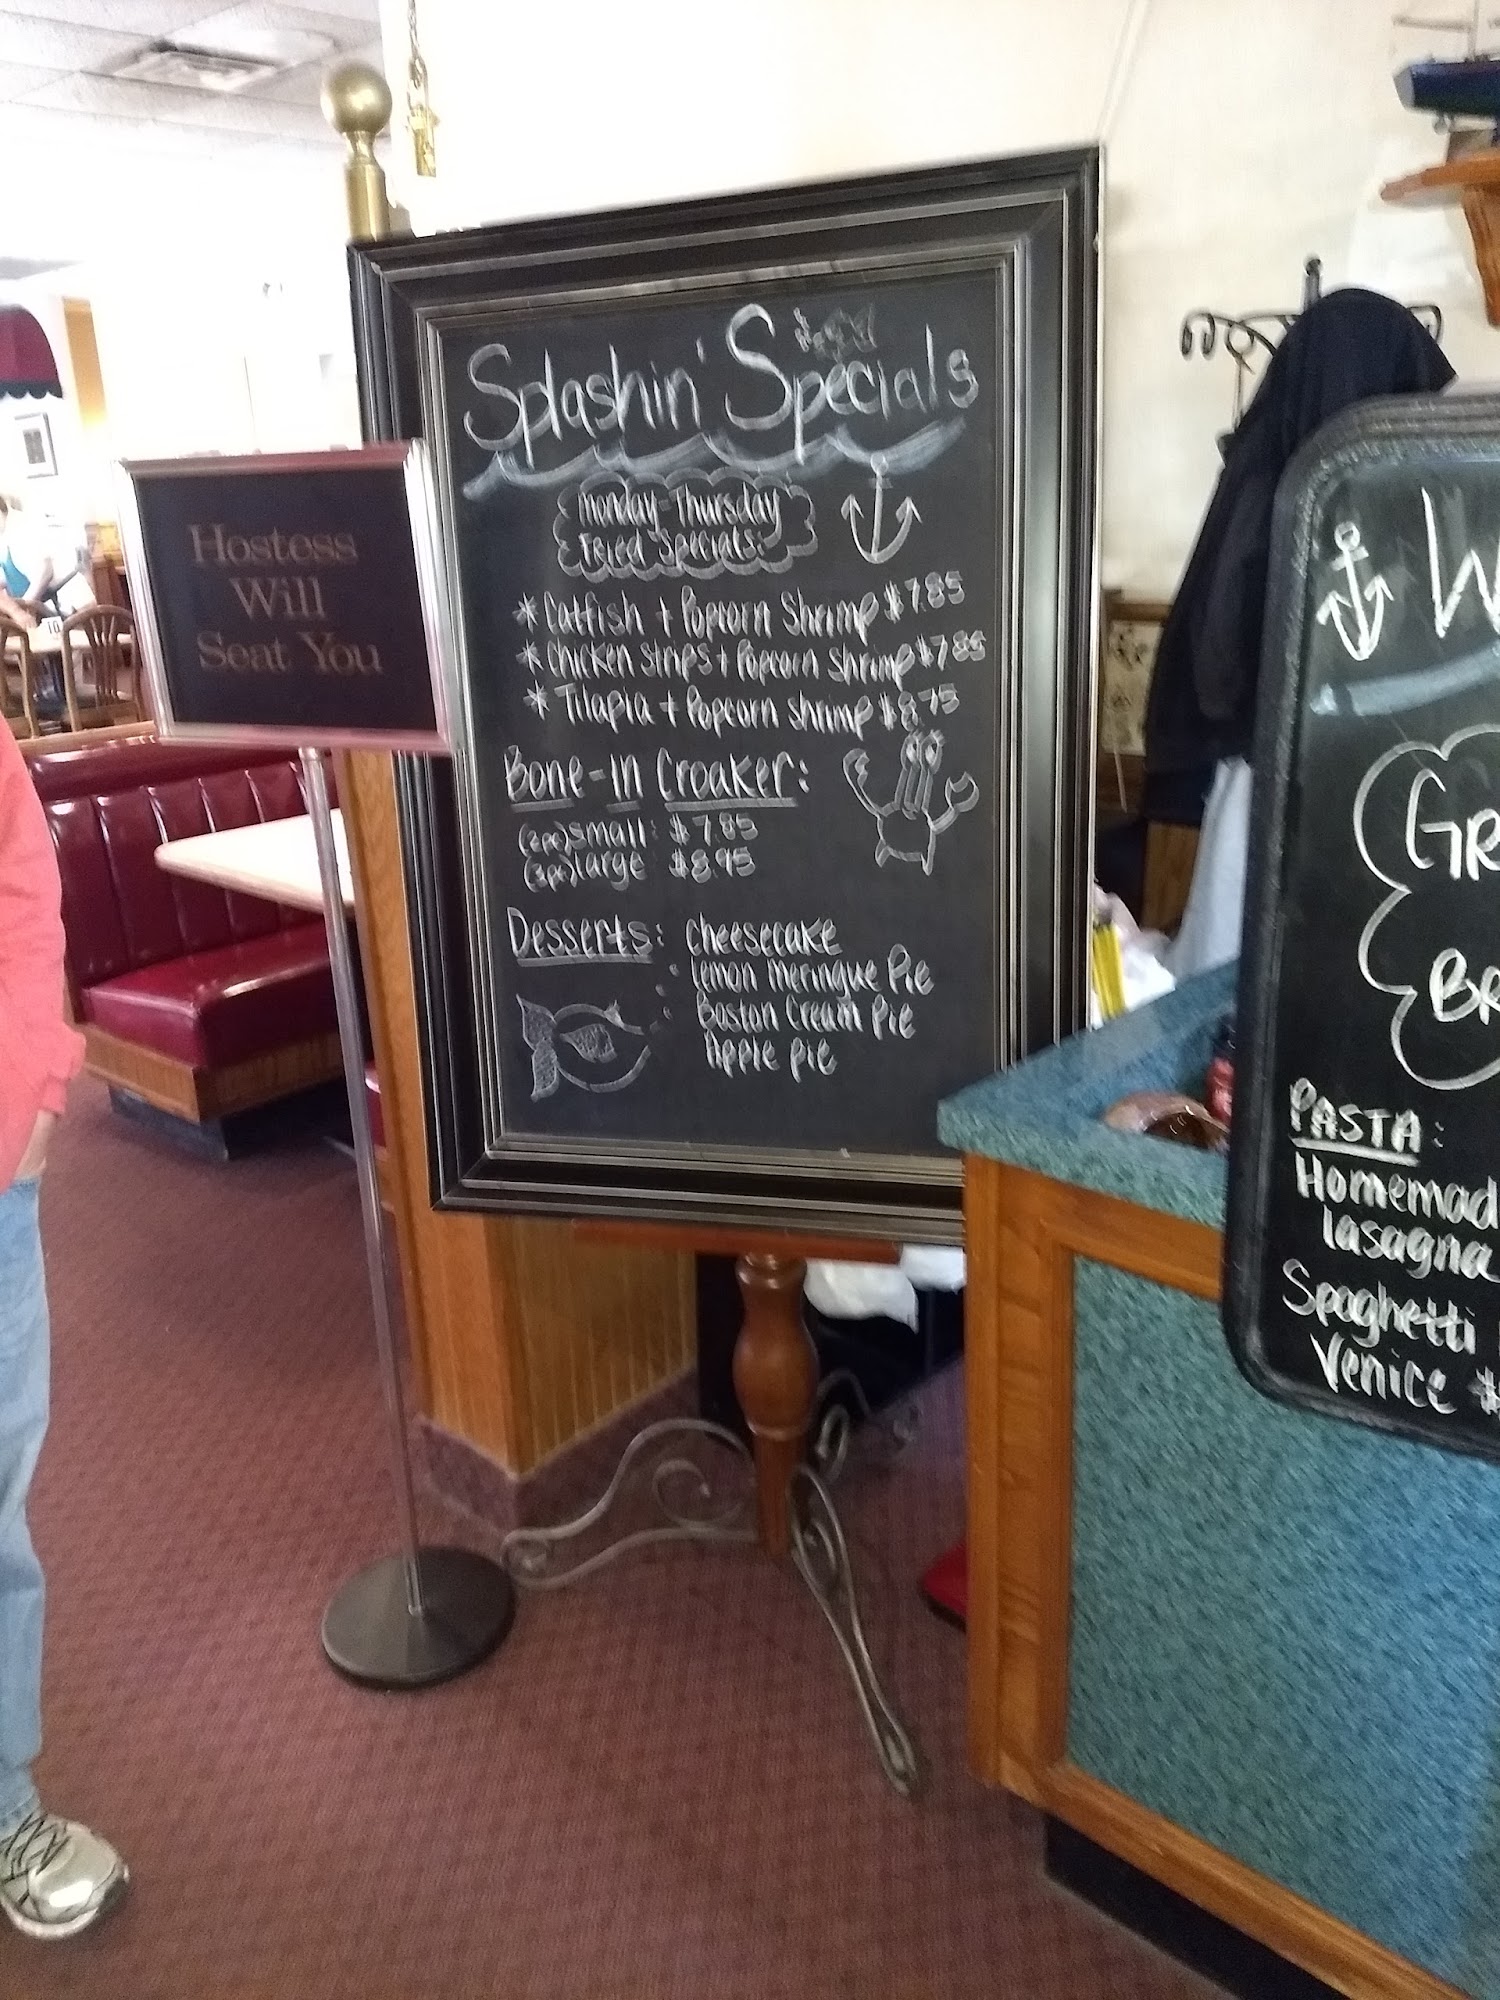 Hostess
Will
Seat You
Splashin' Specials
Monday-Thursday
Fried Specials:
* Catfish + Popcorn Shrimp $7.85
* Chicken strips + Popcorn Shrimp $7.85
* Tilapia + Popcorn shrimp $8.75
Bone-In Croaker:
(2pc) small: $7.85
(3pc) large $8.95
Desserts: Cheesecake
Lemon Meringue Pie
Boston Cream Pie
Apple pie
PASTA:
Homemad
lasagna
Spaghetti
Venice $